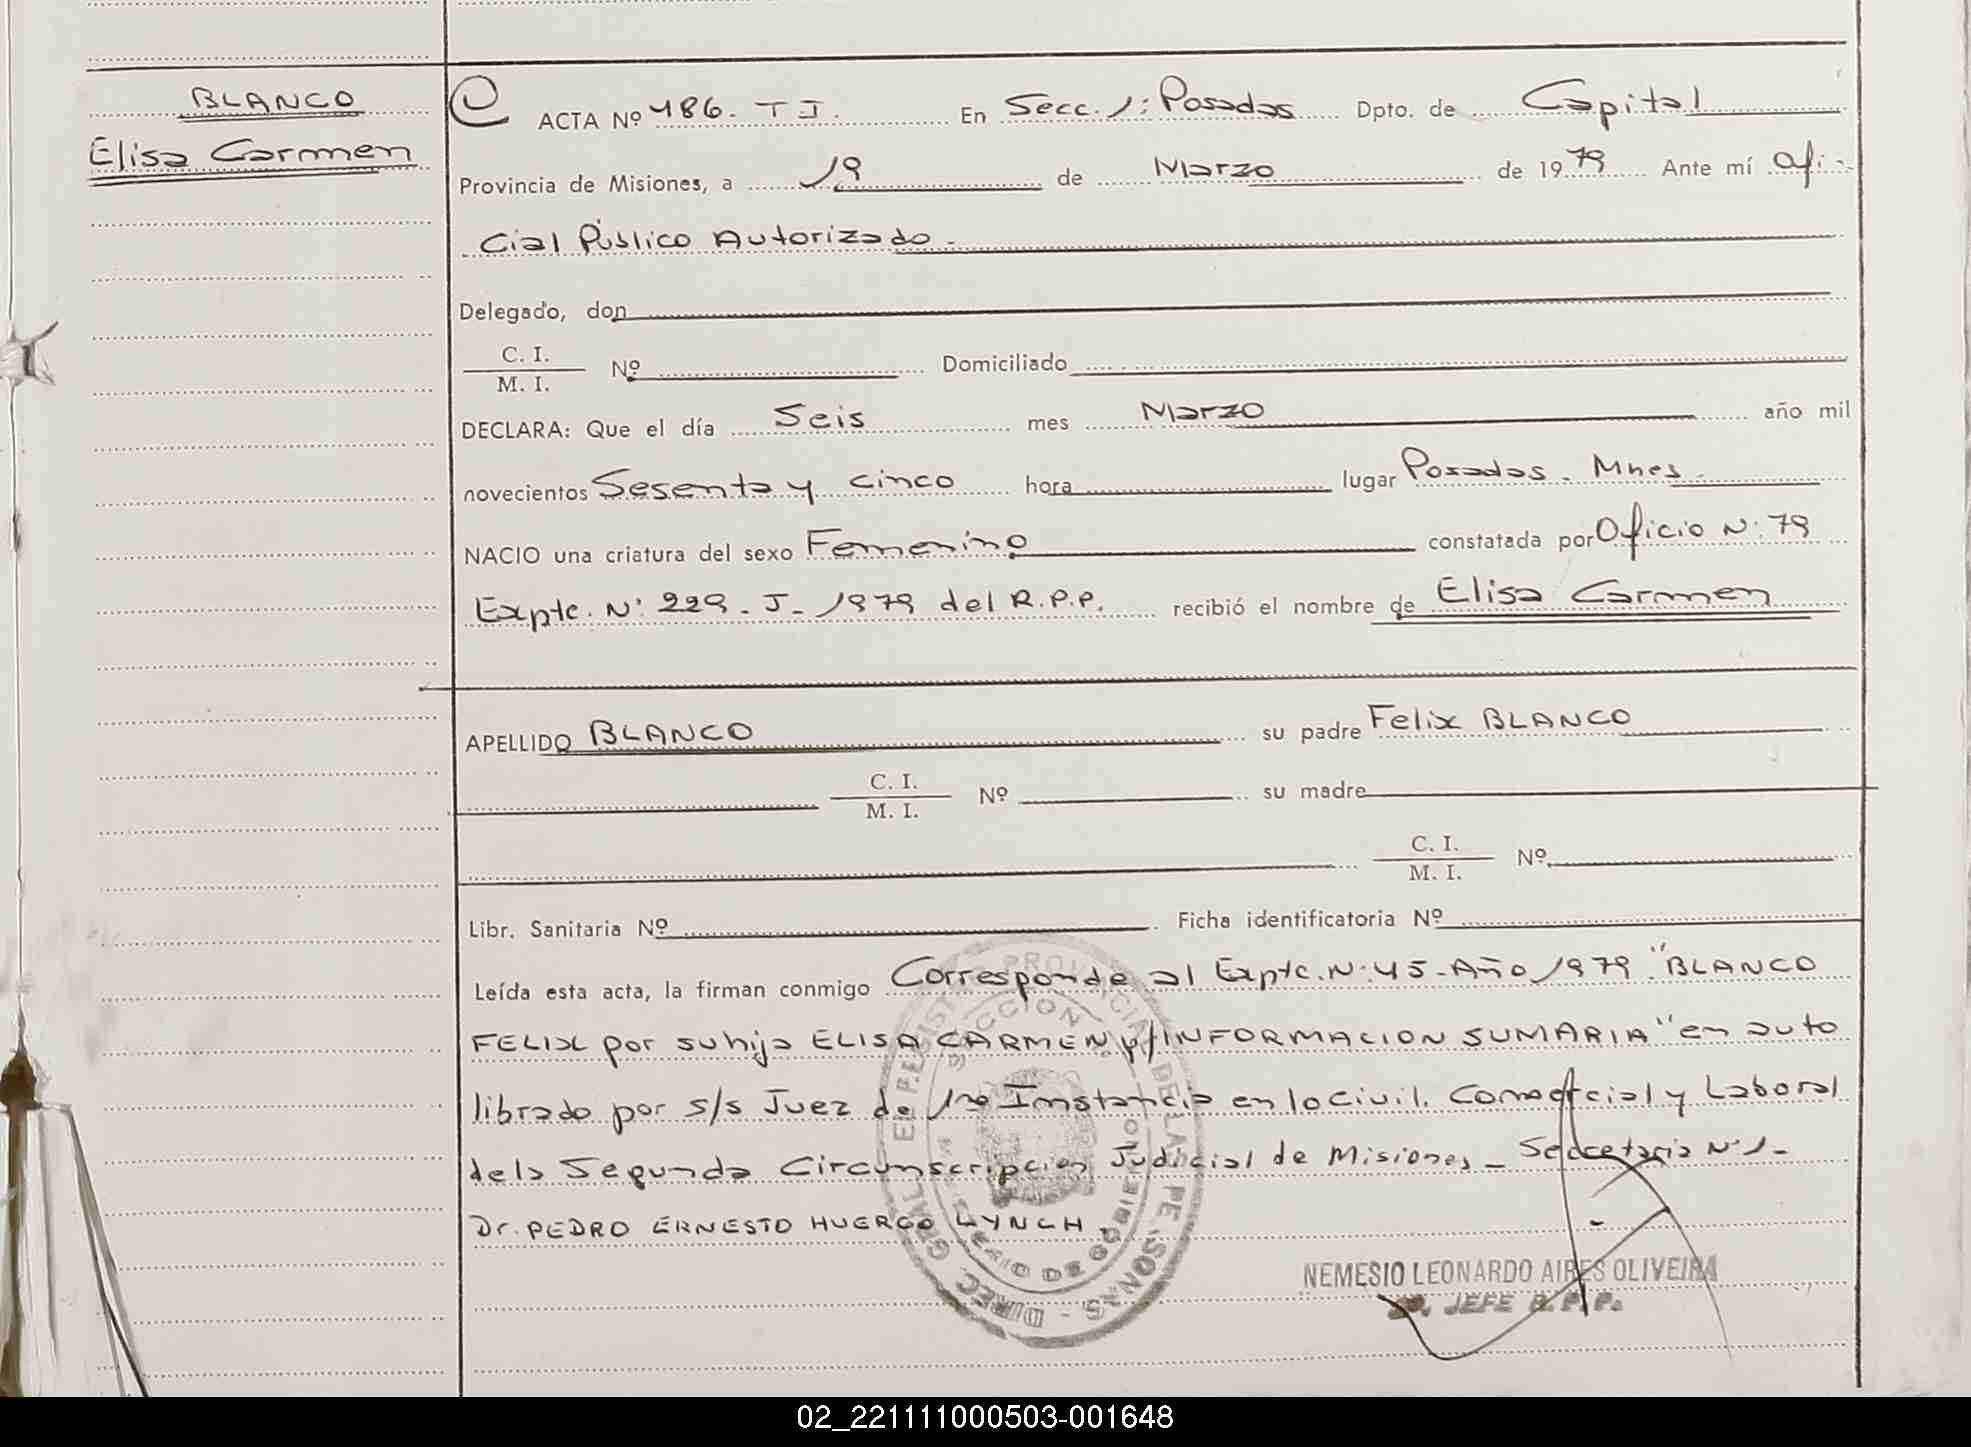 BLANCO
Elisa Carmen
ACTA Nº 486. T I. En Secc. 1: Posadas Dpto. de Capital
Provincia de Misiones, a 19 de Marzo de 1979 Ante mí Ofi-
cial Público Autorizado.
Delegado, don
C. I.
M. I. Nº Domiciliado
DECLARA: Que el día Seis mes Marzo año mil
novecientos Sesenta y cinco hora lugar Posadas. Mnes.
NACIO una criatura del sexo Femenino constatada por Oficio N: 79
Expte. N: 229. J. 1979 del R.P.P. recibió el nombre de Elisa Carmen
APELLIDO BLANCO su padre Felix BLANCO
C. I.
M. I. Nº su madre
C. I.
M. I. Nº
Libr. Sanitaria Nº Ficha identificatoria Nº
Leída esta acta, la firman conmigo Corresponde al Expte. N: 45. Año 1979 "BLANCO
FELIX por su hija ELISA CARMEN p/INFORMACION SUMARIA" en auto
librado por s/s Juez de 1ra Instancia en lo Civil. Comercial y Laboral
de la Segunda Circunscripcion Judicial de Misiones - Secretaria N: 1-
Dr. PEDRO ERNESTO HUERGO LYNCH.
NEMESIO LEONARDO AIRES OLIVEIRA
JEFE R. P. P.
02_221111000503-001648